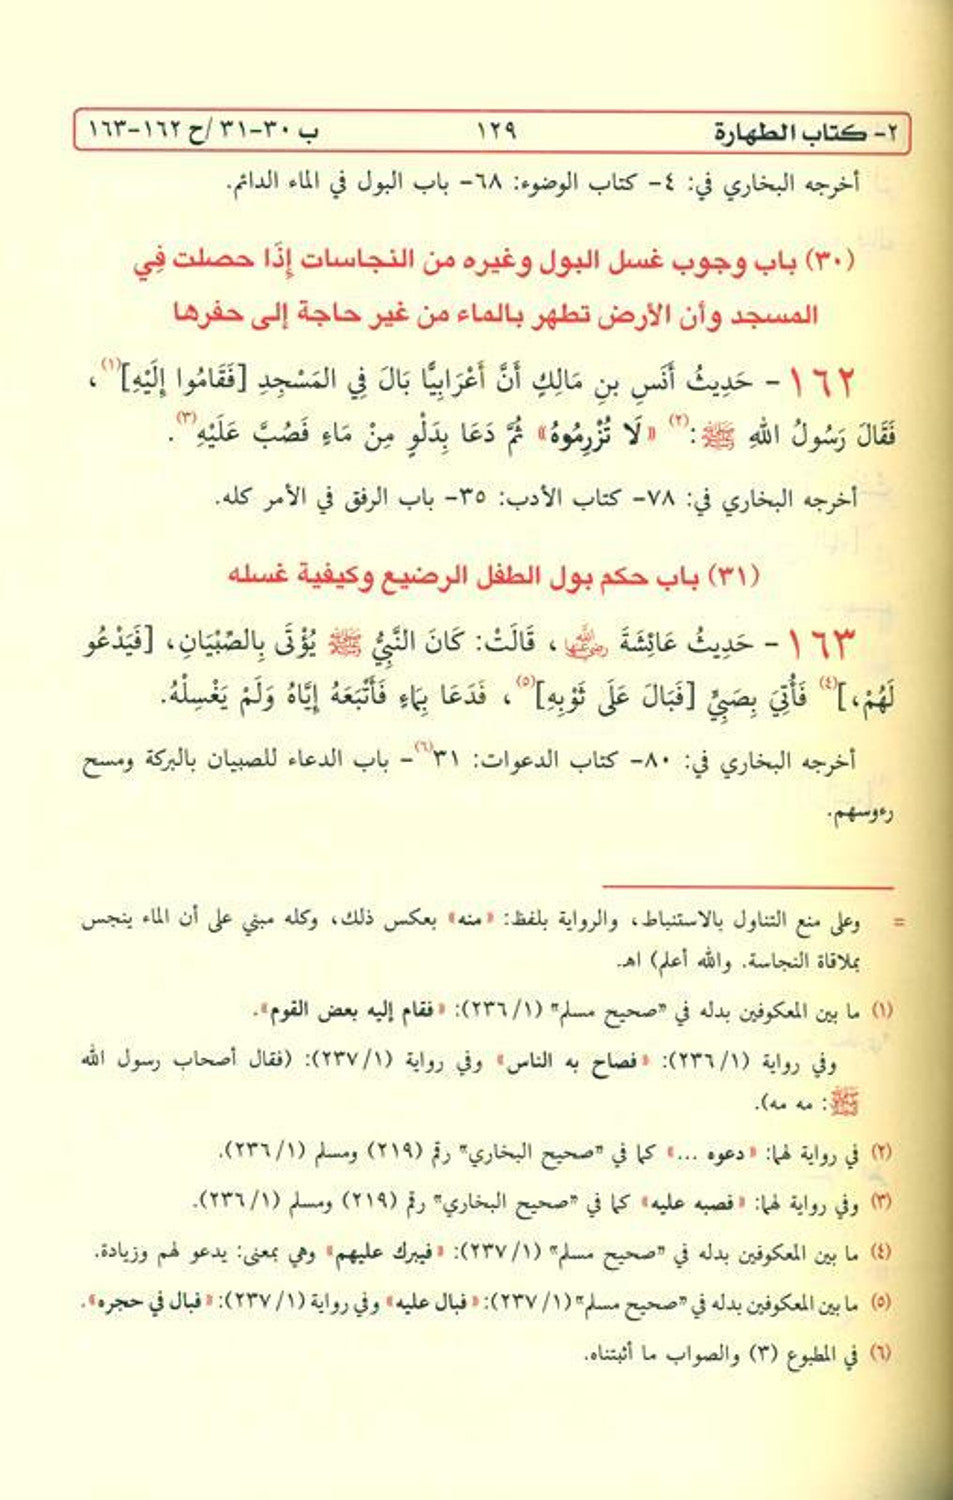 ٢- كتاب الطهارة ١٢٩ ب ٣٠-٣١ /ح ١٦٢-١٦٣
أخرجه البخاري في: ٤- كتاب الوضوء: ٦٨- باب البول في الماء الدائم.
(٣٠) باب وجوب غسل البول وغيره من النجاسات إِذَا حصلت فِي
المسجد وأن الأرض تطهر بالماء من غير حاجة إلى حفرها
١٦٢ - حَدِيثُ أَنَسِ بنِ مَالِكٍ أَنَّ أَعْرَابِيًّا بَالَ فِي المَسْجِدِ [فَقَامُوا إِلَيْهِ](١)،
فَقَالَ رَسُولُ اللهِ ﷺ:(٢) «لَا تُزْرِمُوهُ» ثُمَّ دَعَا بِدَلْوٍ مِنْ مَاءٍ فَصُبَّ عَلَيْهِ(٣).
أخرجه البخاري في: ٧٨- كتاب الأدب: ٣٥- باب الرفق في الأمر كله.
(٣١) باب حكم بول الطفل الرضيع وكيفية غسله
١٦٣ - حَدِيثُ عَائِشَةَ رضي الله عنها، قَالَتْ: كَانَ النَّبِيُّ ﷺ يُؤْتَى بِالصِّبْيَانِ، [فَيَدْعُو
لَهُمْ،](٤) فَأُتِيَ بِصَبِيٍّ [فَبَالَ عَلَى ثَوْبِهِ](٥)، فَدَعَا بِمَاءٍ فَأَتْبَعَهُ إِيَّاهُ وَلَمْ يَغْسِلْهُ.
أخرجه البخاري في: ٨٠- كتاب الدعوات: ٣١(٦)- باب الدعاء للصبيان بالبركة ومسح
رءوسهم.
= وعلى منع التناول بالاستنباط، والرواية بلفظ: «منه» بعكس ذلك، وكله مبني على أن الماء ينجس
بملاقاة النجاسة. والله أعلم) اهـ.
(١) ما بين المعكوفين بدله في "صحيح مسلم" (١/ ٢٣٦): «فقام إليه بعض القوم».
وفي رواية (١/ ٢٣٦): «فصاح به الناس» وفي رواية (١/ ٢٣٧): (فقال أصحاب رسول الله
ﷺ: مه مه).
(٢) في رواية لهما: «دعوه ...» كما في "صحيح البخاري" رقم (٢١٩) ومسلم (١/ ٢٣٦).
(٣) وفي رواية لهما: «فصبه عليه» كما في "صحيح البخاري" رقم (٢١٩) ومسلم (١/ ٢٣٦).
(٤) ما بين المعكوفين بدله في "صحيح مسلم" (١/ ٢٣٧): «فيبرك عليهم» وهي بمعنى: يدعو لهم وزيادة.
(٥) ما بين المعكوفين بدله في "صحيح مسلم" (١/ ٢٣٧): «فبال عليه» وفي رواية (١/ ٢٣٧): «فبال في حجره».
(٦) في المطبوع (٣) والصواب ما أثبتناه.